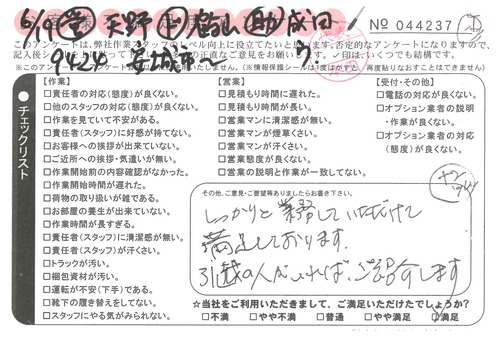 6/19
天野
成田
No 044237
このアンケートは、弊社作業スタッフのレベル向上に役立てたいと思います。否定的なアンケートになりますので、
チェックリスト
【作業】
□責任者の対応(態度)が良くない。
□他のスタッフの対応(態度)が良くない。
□作業を見ていて不安がある。
□責任者(スタッフ)に好感が持てない。
□お客様への挨拶が出来ていない。
□ご近所への挨拶・気遣いが無い。
□作業開始前の内容確認がなかった。
□作業開始時間が遅れた。
□荷物の取り扱いが雑である。
□お部屋の養生が出来ていない。
□作業時間が長すぎる。
□責任者(スタッフ)に清潔感が無い。
□責任者(スタッフ)が汗くさい。
□トラックが汚い。
□梱包資材が汚い。
□運転が不安(下手)である。
□靴下の履き替えをしてない。
□スタッフにやる気がみられない。
【営業】
□見積もり時間に遅れた。
□見積もり時間が長い。
□営業マンに清潔感が無い。
□営業マンが煙草くさい。
□営業マンが汗くさい。
□営業態度が良くない。
□営業の説明と作業が一致してない。
【受付・その他】
□電話の対応が良くない。
□オプション業者の説明
・作業が良くない。
□オプション業者の対応
(態度)が良くない。
その他、ご意見・ご要望等ありましたらお書き下さい。
しっかりと業務していただけて
満足しております。
引越の人がいれば、ご紹介します
☆当社をご利用いただきまして、ご満足いただけたでしょうか?
□不満 □やや不満 □普通 □やや満足 □満足